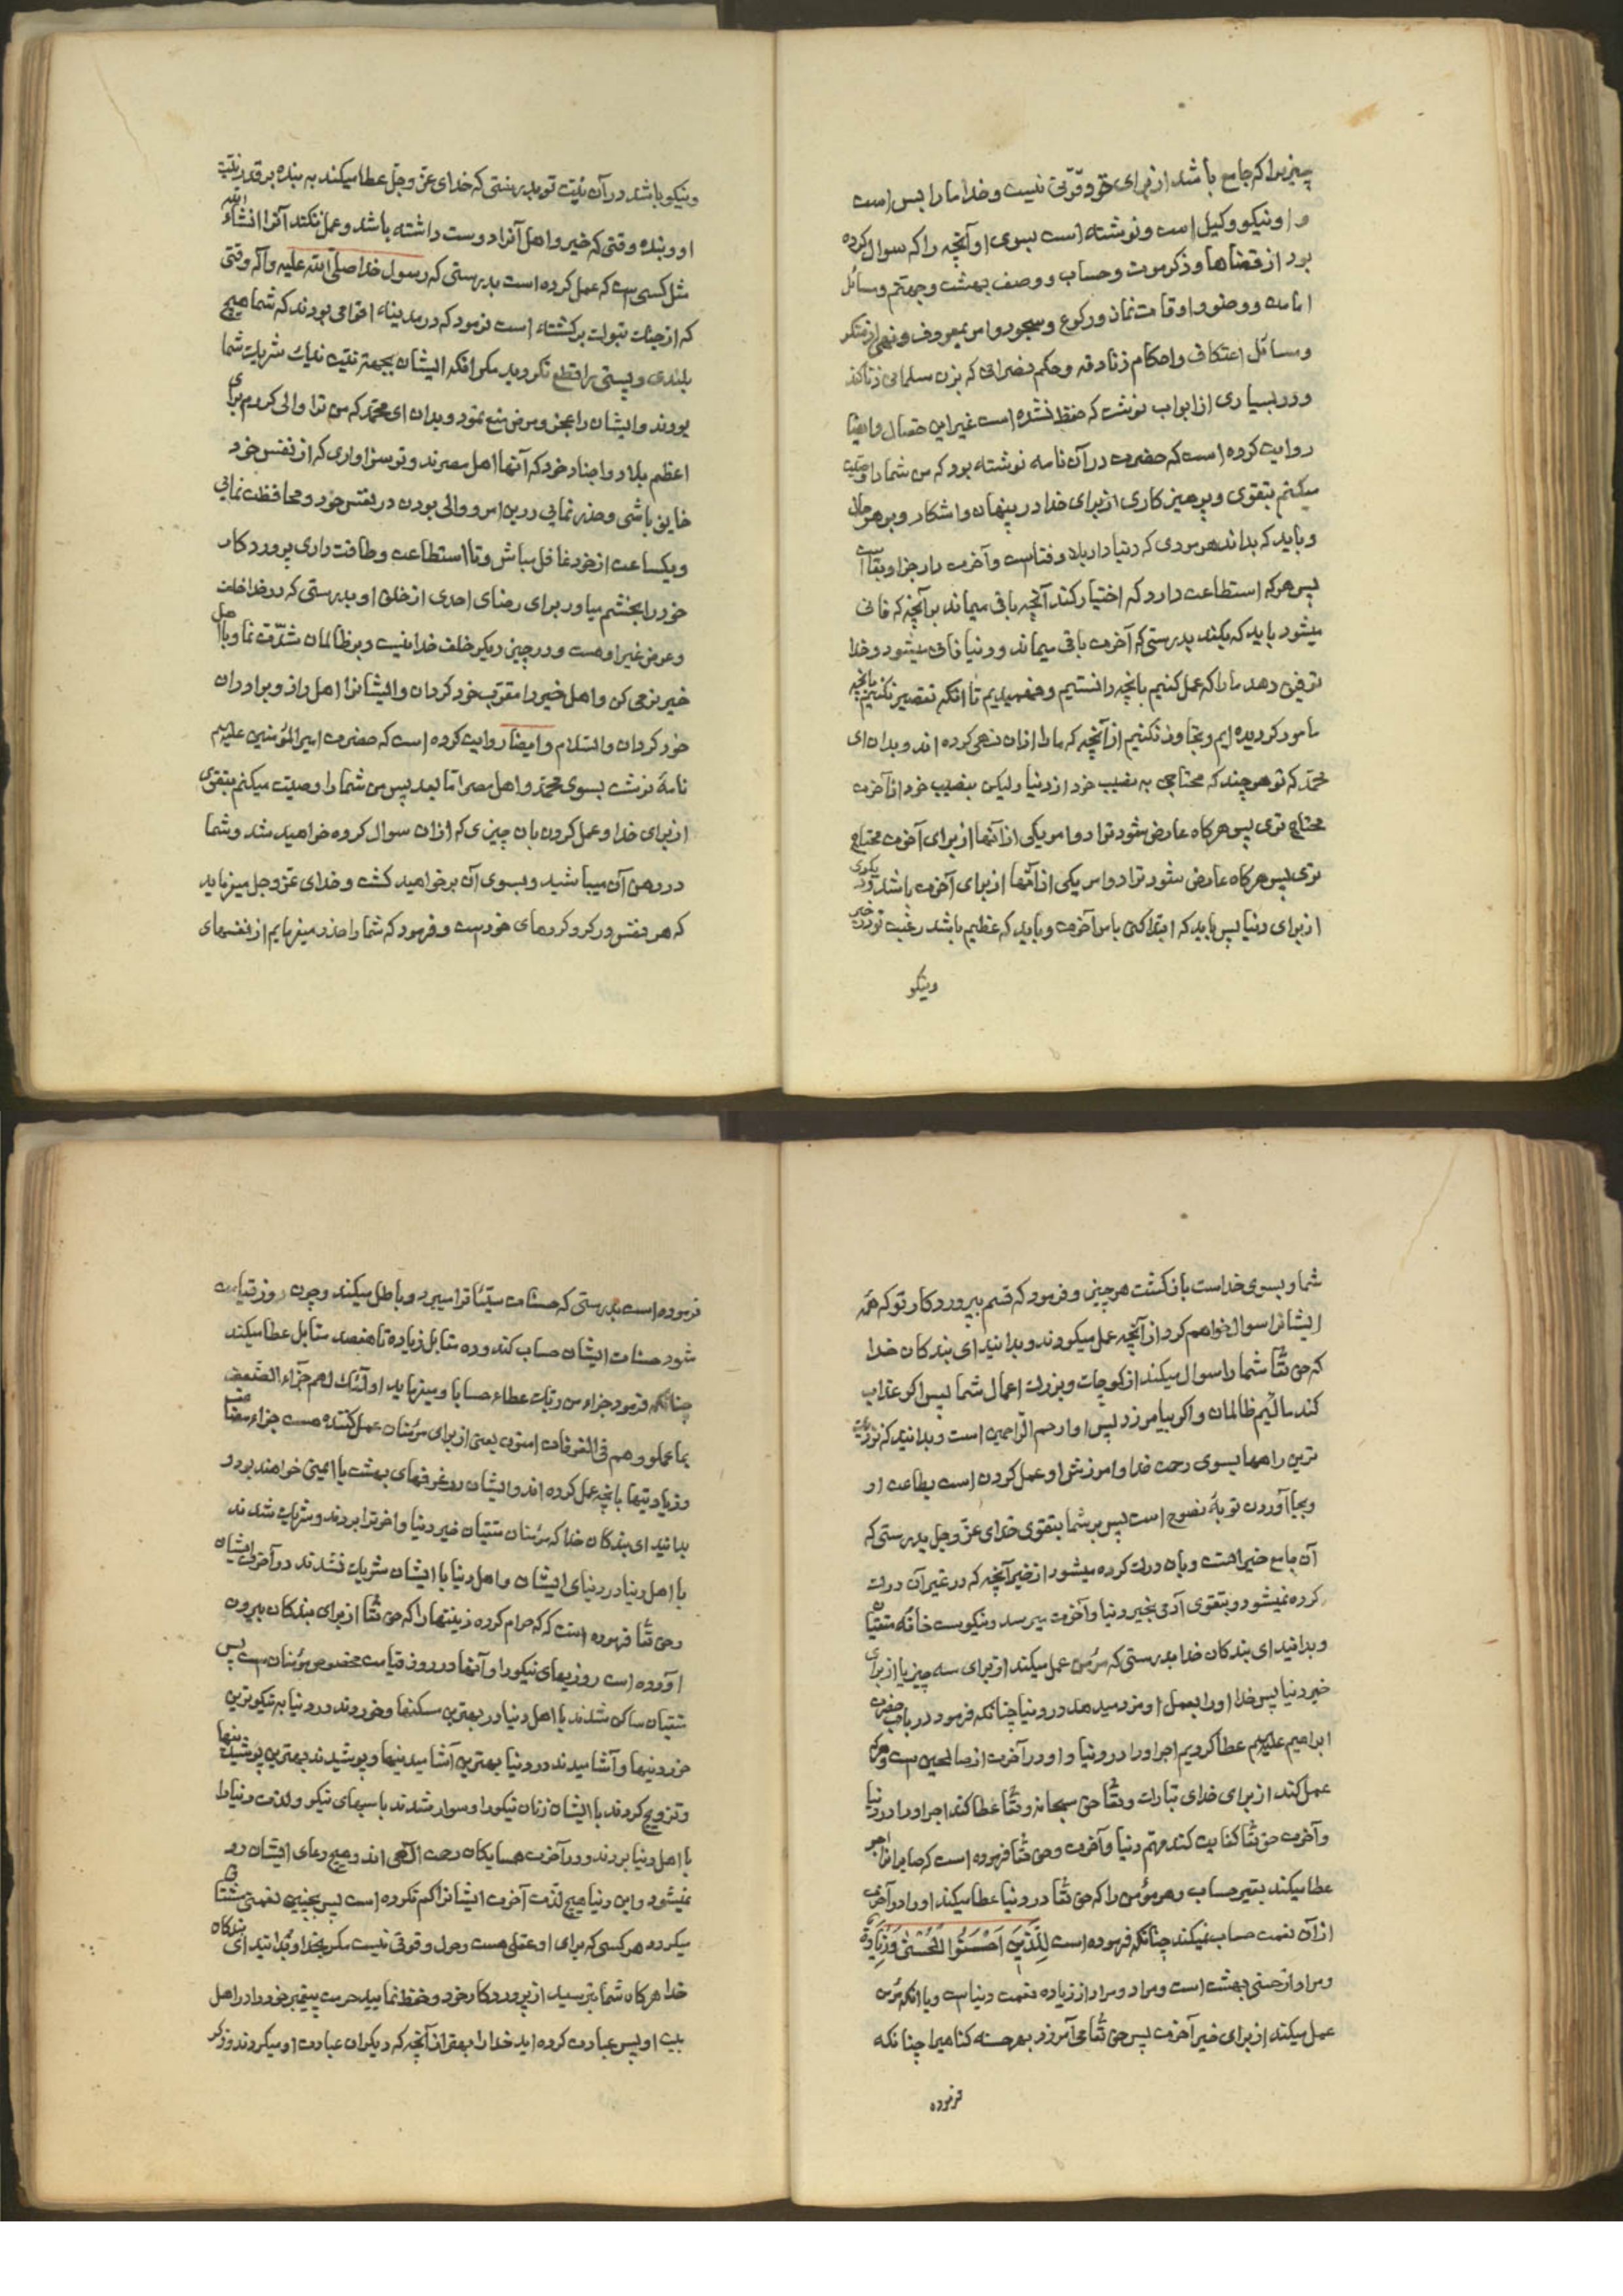 چیزیرا که جامع باشد از برای حق و قوتی نیست و خدا ما را بس است
و او نیکو وکیل است و نوشته است بسوی او آنچه را که سوال کرده
بود از قضاها و ذکر موت و حساب و وصف بهشت و جهنم و مسائل
امامت و وضو و اوقات نماز و رکوع و سجود و امر بمعروف و نهی از منکر
و مسائل اعتکاف و احکام زنادقه و حکم نصرانی که بزن مسلمانی زنا کند
و در بسیاری از ابواب نوشت که حفظ نشده است غیر این خصال و ایضا
روایت کرده است که حضرت در آن نامه نوشته بود که من شما را وصیت
میکنم بتقوی و پرهیزکاری از برای خدا در پنهان و اشکار و بر هر حال
و باید که بداند هر مردی که دنیا دار بلا و فناست و آخرت دار جزا و بقا است
پس هر که استطاعت دارد که اختیار کند آنچه باقی میماند بر آنچه که فانی
میشود باید که بکند بدرستی که آخرت باقی میماند و دنیا فانی میشود و خدا
توفیق دهد ما را که عمل کنیم بانچه دانستیم و فهمیدیم تا انکه تقصیر نکنیم بانچه
مامور کردیده ایم و تجاوز نکنیم از آنچه که ما را از ان نهی کرده اند و بدان ای
محمد که تو هر چند که محتاجی به نصیب خود از دنیا ولیکن بنصیب خود از آخرت
محتاج تری پس هرکاه عارض شود ترا دو امر یکی از آنها از برای آخرت محتاج
تری پس هرکاه عارض شود ترا دو امر یکی از آنها از برای آخرت باشد و یکی
از برای دنیا پس باید که ابتدا کنی بامر آخرت و باید که عظیم باشد رغبت تو در خیر
و نیکو
و نیکو باشد در آن نیت تو بدرستی که خدای عز و جل عطا میکند به بنده بر قدر نیت
او و بنده وقتی که خیر و اهل آنرا دوست داشته باشد و عمل نکند آنرا انشاء الله
مثل کسی است که عمل کرده است بدرستی که رسول خدا صلی الله علیه و آله وقتی
که از جنک تبوک برکشته است فرمود که در مدینه اقوامی بودند که شما هیچ
بلندی و پستی را قطع نکردید مکر انکه ایشان بجهة نیت ندیات شریک شما
بودند و ایشان را بجز مرض منع ننمود و بدان ای محمد که من ترا والی کردم برای
اعظم بلاد و اجناد خود که آنها اهل مصرند و تو سزاواری که از نفس خود
خایف باشی و حذر نمایی در این امر و والی بودن در نفس خود و محافظت نمایی
و یکساعت از خود غافل مباش و تا استطاعت و طاقت داری پروردکار
خود را بخشم میاور برای رضای احدی از خلق او بدرستی که در خدا خلف
و عوض غیر او هست و در چیز دیکر خلف خدا نیست و بر ظالمان شدت نما و با اهل
خیر نرمی کن و اهل خیر را مقرب خود کردان و ایشانرا اهل راز و برادران
خود کردان والسلام و ایضا روایت کرده است که حضرت امیر المؤمنین علیه السلم
نامهٔ نوشت بسوی محمد و اهل مصر اما بعد پس من شما را وصیت میکنم بتقوی
از برای خدا و عمل کردن بان چیزی که از ان سوال کرده خواهید شد و شما
در رهن آن میباشید و بسوی آن بر خواهید کشت و خدای عز و جل میفرماید
که هر نفس در کرو کردهای خود است و فرمود که شما را حذر میفرمایم از نفسهای
شما و بسوی خداست بازکشت هر چیز و فرمود که قسم بپروردکار تو که همه
ایشانرا سوال خواهم کرد از آنچه عمل میکردند و بدانید ای بندکان خدا
که حق تعا شما را سوال میکند از کوچک و بزرک اعمال شما پس اکر عذاب
کند مائیم ظالمان و اکر بیامرزد پس او ارحم الراحمین است و بدانید که نزدیک
ترین راهها بسوی رحمت خدا و امرزش او عمل کردن است بطاعت او
و بجا آوردن توبهٔ نصوح است پس بر شما بتقوی خدای عز و جل بدرستی که
آن جامع خیر است و بان درک کرده میشود از خیر آنچه که در غیر آن درک
کرده نمیشود و بتقوی آدمی بخیر دنیا و آخرت میرسد و نیکوست خانه متقیان
و بدانید ای بندکان خدا بدرستی که مؤمن عمل میکند از برای سه چیز یا از برای
خیر دنیا پس خدا او را بعمل او مزد میدهد در دنیا چنانکه فرمود در باب حضرت
ابراهیم علیه السلم عطا کردیم اجر او را در دنیا و او در آخرت از صالحین است و هر که
عمل کند از برای خدای تبارک و تعا حق سبحانه و تعا عطا کند اجر او را در دنیا
و آخرت حق تعا کفایت کند مهم دنیا و آخرت و حق تعا فرموده است که صابرانرا اجر
عطا میکند بغیر حساب و هر مؤمن را که حق تعا در دنیا عطا میکند او را در آخرت
از آن نعمت حساب نمیکند چنانکه فرموده است لِلَّذِینَ اَحْسَنُوا الْحُسْنٰی وَ زِیَادَة
و مراد از حسنی بهشت است و مراد و مراد از زیاده نعمت دنیاست و یا انکه مؤمن
عمل میکند از برای خیر آخرت پس حق تعا می آمرزد بهر حسنه کناهیرا چنانکه
فرموده
فرموده است بدرستی که حسنات سیئاترا میبرد و باطل میکند و چون روز قیامت
شود حسنات ایشان حساب کند و ده مقابل زیاده تا هفتصد مقابل عطا میکند
چنانکه فرمود جزاء من ربک عطاء حسابا و میفرماید اولئک لهم جزاء الضعف
بما عملوا و هم فی الغرفات امنون یعنی از برای مؤمنان عمل کننده هست جزاء مضاعف
و زیادتیها بانچه عمل کرده اند و ایشان در غرفهای بهشت با ایمنی خواهند بود و
بدانید ای بندکان خدا که مؤمنان متقیان خیر دنیا و اخرترا بردند و شریک شدند
با اهل دنیا در دنیای ایشان و اهل دنیا با ایشان شریک نشدند در آخرت ایشان
و حق تعا فرموده است که که حرام کرده زینتها را که حق تعا از برای بندکان بیرون
آورده است روزیهای نیکو را و آنها در روز قیامت مخصوص مؤمنان است پس
متقیان ساکن شدند با اهل دنیا در بهترین مسکنها و خوردند در دنیا به نیکوترین
خوردنیها و آشامیدند در دنیا بهترین آشامیدنیها و پوشیدند بهترین پوشیدنیها
و تزویج کردند با ایشان زنان نیکو را و سوار شدند باسبهای نیکو و لذت دنیا را
با اهل دنیا بردند و در آخرت همسایکان رحمت الهی اند و هیچ دعای ایشان رد
نمیشود و این دنیا هیچ لذت آخرت ایشانرا کم نکرده است پس بچنین نعمتی مشتاق
میکردد هر کسی که برای او عقلی هست و حول و قوتی نیست مکر بخدا و بدانید ای بندکان
خدا هرکاه شما بترسید از پروردکار خود و حفظ نمایید حرمت پیغمبر خود را در اهل
بیت او پس عبادت کرده اید خدا را بهتر از آنچه که دیکران عبادت او میکردند و ذکر